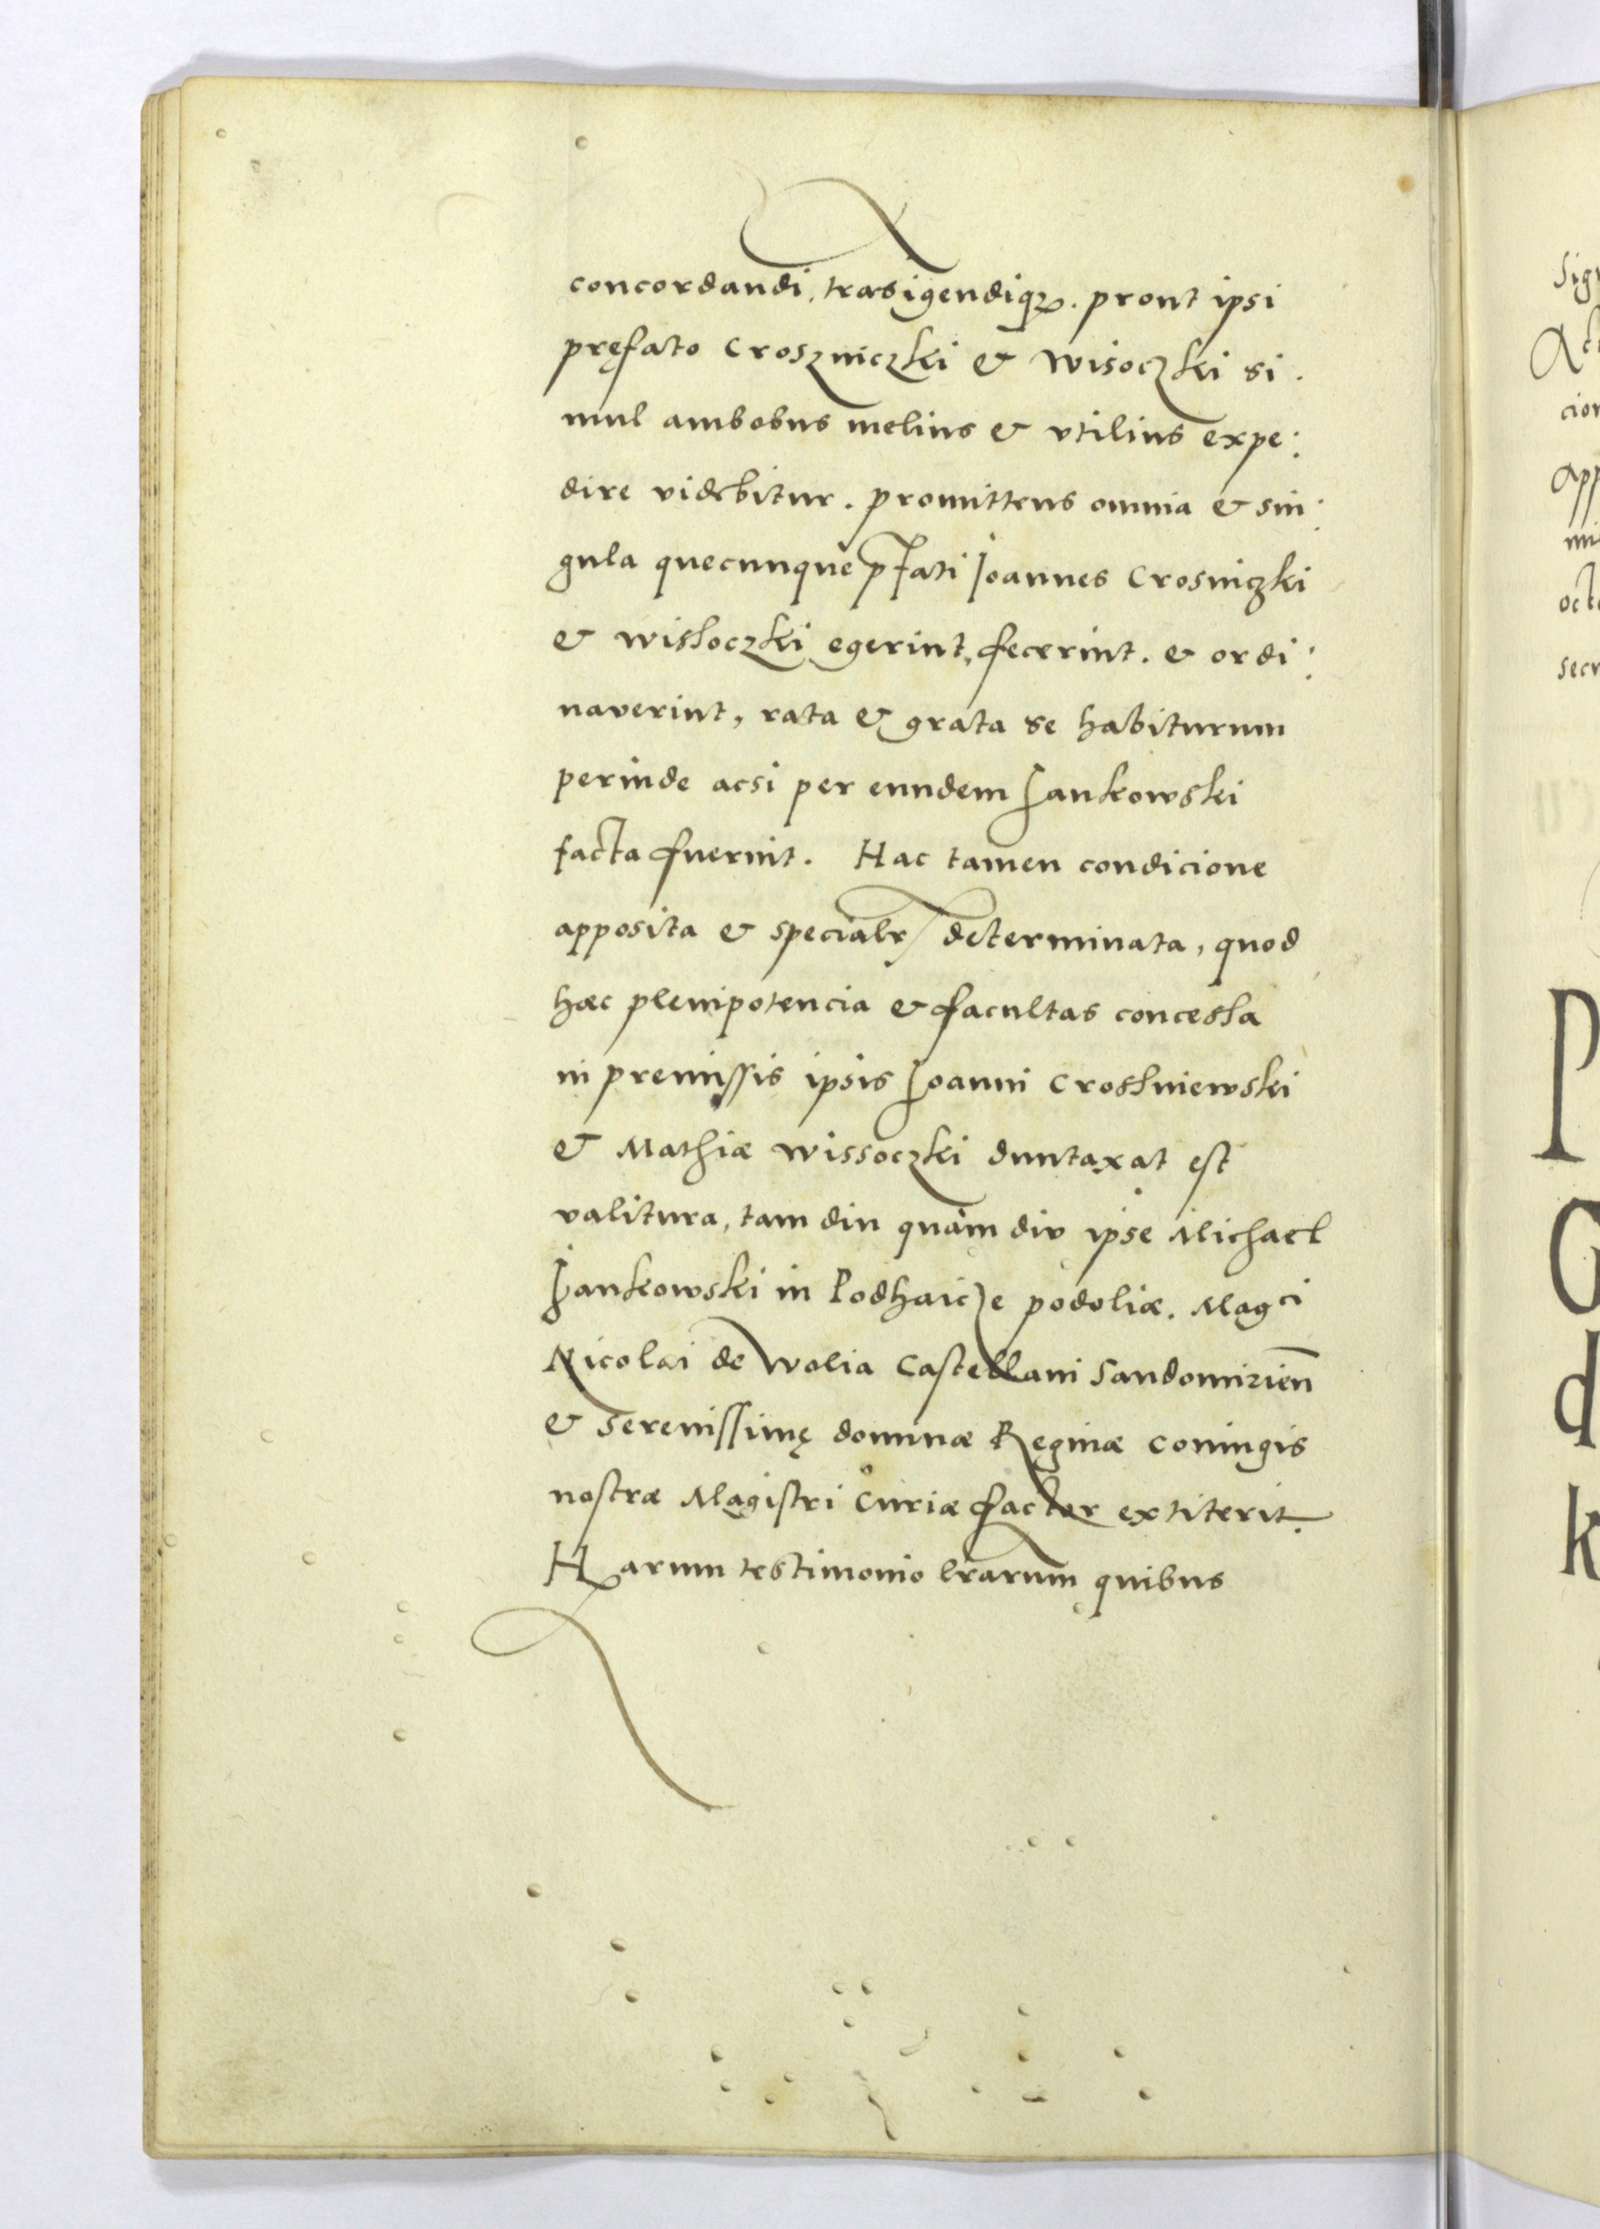 concordandi, trãsigendiqꝫ. prout ipsi
pręfato Croszniczki & Wisoczki si.
mul ambobus melius & vtilius expe:
dire videbitur. promittens omnia & sin:
gula quecunque pfati Joannes Crosniczki
& wissoczki egerint, fecerint. & ordi:
naverint, rata & grata se habiturum
perinde acsi per eundem Jankowski
facta fuerint. Hac tamen condicione
apposita & specialr determinata, quod
hæc plenipotencia & facultas concessa
in premissis ipsis Joanni Crossniewski
& Mathiæ wissoczki duntaxat est
valitura, tam diu quàm div ipse Michael
Jankowski in Podhaicze podoliæ. Magci
Nicolai de Wolia Castellani Sandomirień
& Serenissimę dominæ Reginæ coniugis
nostræ Magistri Curiæ factor extiterit.
Harum testimonio lrarum quibus
Sig
Act
cion
app
mi
octa
secu
P
G
d
k